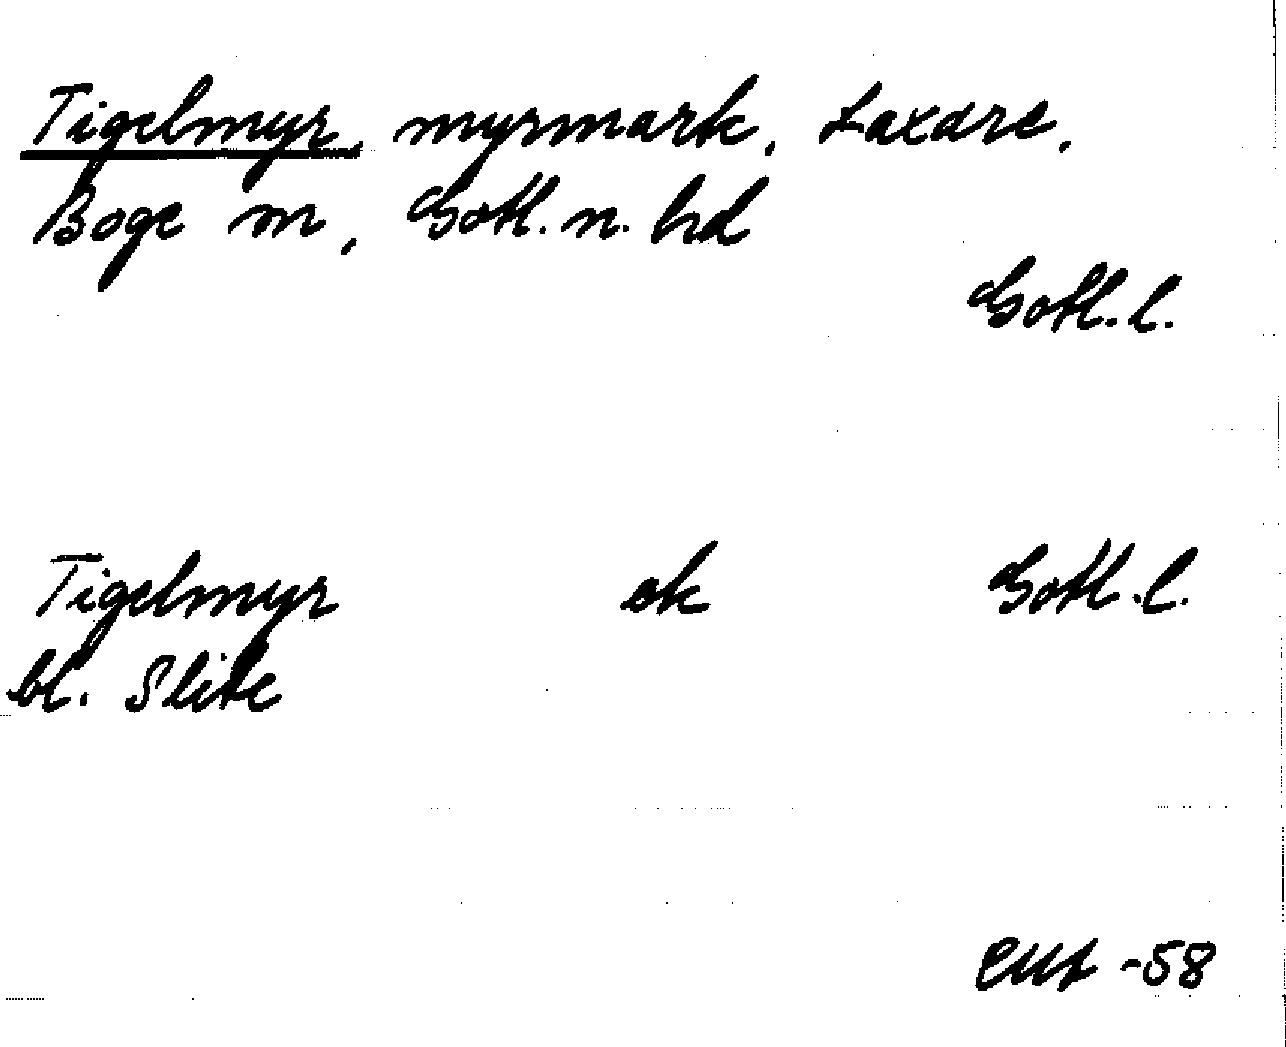 Tigelmyr, myrmark, Laxare,
Boge sn, Gotl. n. hd
Gotl. l.
Tigelmyr ek Gotl. l.
bl. Slite
-58